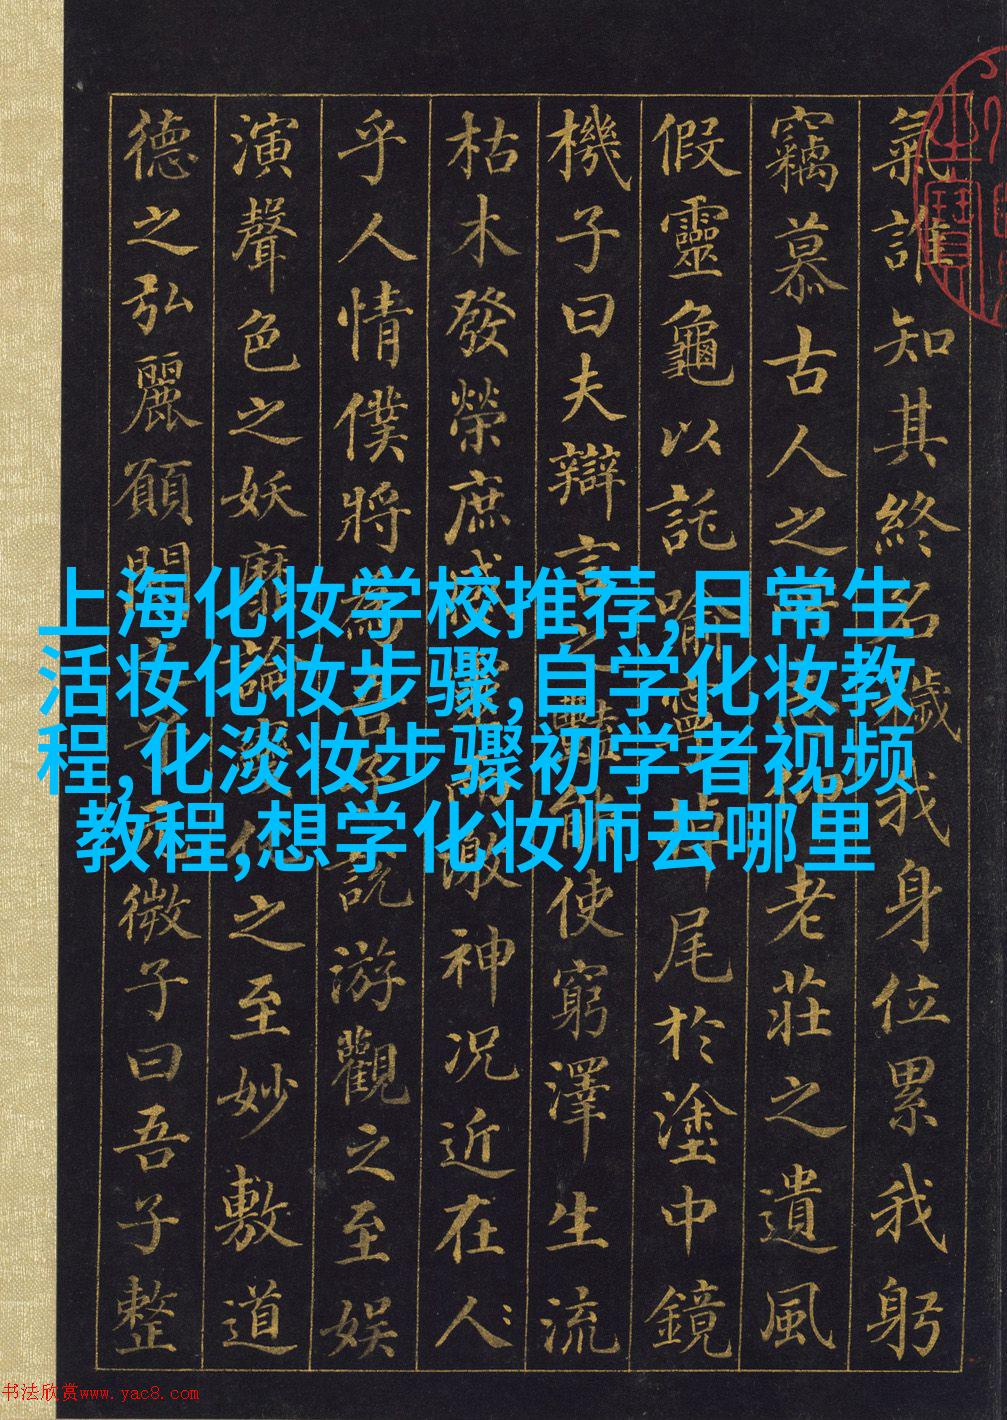 氣誰知其終名穢我身位累我躬
竊慕古人之所志仰老莊之遺風
假靈龜以託喻寧掉尾於塗中鏡
機子曰夫辯言之豔能使窮澤生流
枯木發榮庶感而激神況近在人
乎人情僕將為吾子說游觀之至娛
演聲色之妖靡論變化之至妙敷道
德之弘麗願聞微子曰吾子整
上海化妆学校推荐,日常生
活妆化妆步骤,自学化妆教
程,化淡妆步骤初学者视频
教程,想学化妆师去哪里
书法欣赏www.yac8.com